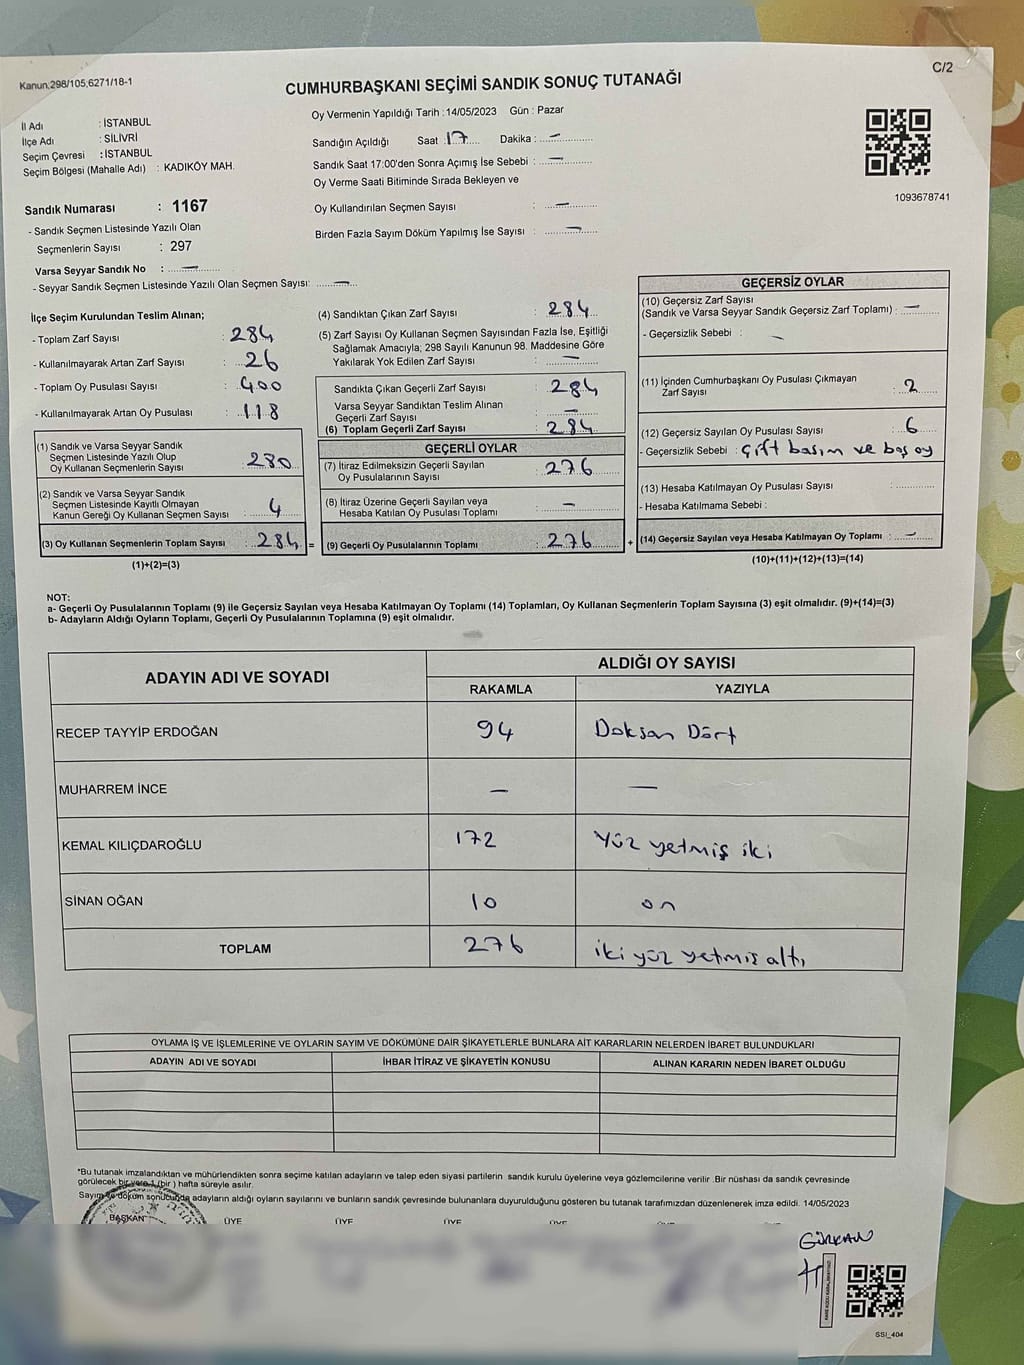 Kanun;298/105;6271/18-1
C/2
CUMHURBAŞKANI SEÇİMİ SANDIK SONUÇ TUTANAĞI
İl Adı : İSTANBUL
İlçe Adı : SİLİVRİ
Seçim Çevresi : İSTANBUL
Seçim Bölgesi (Mahalle Adı) : KADIKÖY MAH.
Sandık Numarası : 1167
- Sandık Seçmen Listesinde Yazılı Olan
Seçmenlerin Sayısı : 297
Varsa Seyyar Sandık No : —
- Seyyar Sandık Seçmen Listesinde Yazılı Olan Seçmen Sayısı: —
Oy Vermenin Yapıldığı Tarih : 14/05/2023 Gün : Pazar
Sandığın Açıldığı Saat : 17 Dakika : —
Sandık Saat 17:00'den Sonra Açımış İse Sebebi : —
Oy Verme Saati Bitiminde Sırada Bekleyen ve
Oy Kullandırılan Seçmen Sayısı : —
Birden Fazla Sayım Döküm Yapılmış İse Sayısı : —
1093678741
İlçe Seçim Kurulundan Teslim Alınan;
- Toplam Zarf Sayısı : 284
- Kullanılmayarak Artan Zarf Sayısı : 26
- Toplam Oy Pusulası Sayısı : 400
- Kullanılmayarak Artan Oy Pusulası : 118
(1) Sandık ve Varsa Seyyar Sandık
Seçmen Listesinde Yazılı Olup
Oy Kullanan Seçmenlerin Sayısı : 280
(2) Sandık ve Varsa Seyyar Sandık
Seçmen Listesinde Kayıtlı Olmayan
Kanun Gereği Oy Kullanan Seçmen Sayısı : 4
(3) Oy Kullanan Seçmenlerin Toplam Sayısı : 284 =
(1)+(2)=(3)
(4) Sandıktan Çıkan Zarf Sayısı : 284
(5) Zarf Sayısı Oy Kullanan Seçmen Sayısından Fazla İse, Eşitliği
Sağlamak Amacıyla; 298 Sayılı Kanunun 98. Maddesine Göre
Yakılarak Yok Edilen Zarf Sayısı : —
Sandıkta Çıkan Geçerli Zarf Sayısı : 284
Varsa Seyyar Sandıktan Teslim Alınan
Geçerli Zarf Sayısı : —
(6) Toplam Geçerli Zarf Sayısı : 284
GEÇERLİ OYLAR
(7) İtiraz Edilmeksizin Geçerli Sayılan
Oy Pusulalarının Sayısı : 276
(8) İtiraz Üzerine Geçerli Sayılan veya
Hesaba Katılan Oy Pusulası Toplamı : —
(9) Geçerli Oy Pusulalarının Toplamı : 276 +
GEÇERSİZ OYLAR
(10) Geçersiz Zarf Sayısı
(Sandık ve Varsa Seyyar Sandık Geçersiz Zarf Toplamı) : —
- Geçersizlik Sebebi : —
(11) İçinden Cumhurbaşkanı Oy Pusulası Çıkmayan
Zarf Sayısı : 2
(12) Geçersiz Sayılan Oy Pusulası Sayısı : 6
- Geçersizlik Sebebi : Çift basım ve boş oy
(13) Hesaba Katılmayan Oy Pusulası Sayısı :
- Hesaba Katılmama Sebebi :
(14) Geçersiz Sayılan veya Hesaba Katılmayan Oy Toplamı : —
(10)+(11)+(12)+(13)=(14)
NOT:
a- Geçerli Oy Pusulalarının Toplamı (9) ile Geçersiz Sayılan veya Hesaba Katılmayan Oy Toplamı (14) Toplamları, Oy Kullanan Seçmenlerin Toplam Sayısına (3) eşit olmalıdır. (9)+(14)=(3)
b- Adayların Aldığı Oyların Toplamı, Geçerli Oy Pusulalarının Toplamına (9) eşit olmalıdır.
ADAYIN ADI VE SOYADI
ALDIĞI OY SAYISI
RAKAMLA YAZIYLA
RECEP TAYYİP ERDOĞAN 94 Doksan Dört
MUHARREM İNCE — —
KEMAL KILIÇDAROĞLU 172 Yüz yetmiş iki
SİNAN OĞAN 10 on
TOPLAM 276 iki yüz yetmiş altı
OYLAMA İŞ VE İŞLEMLERİNE VE OYLARIN SAYIM VE DÖKÜMÜNE DAİR ŞİKAYETLERLE BUNLARA AİT KARARLARIN NELERDEN İBARET BULUNDUKLARI
ADAYIN ADI VE SOYADI İHBAR İTİRAZ VE ŞİKAYETİN KONUSU ALINAN KARARIN NEDEN İBARET OLDUĞU
*Bu tutanak imzalandıktan ve mühürlendikten sonra seçime katılan adayların ve talep eden siyasi partilerin sandık kurulu üyelerine veya gözlemcilerine verilir .Bir nüshası da sandık çevresinde
görülecek bir yere 1 (bir ) hafta süreyle asılır.
Sayım ve döküm sonucunda adayların aldığı oyların sayılarını ve bunların sandık çevresinde bulunanlara duyurulduğunu gösteren bu tutanak tarafımızdan düzenlenerek imza edildi. 14/05/2023
BAŞKAN ÜYE ÜYE ÜYE ÜYE
GÜRKAN
SSI_404